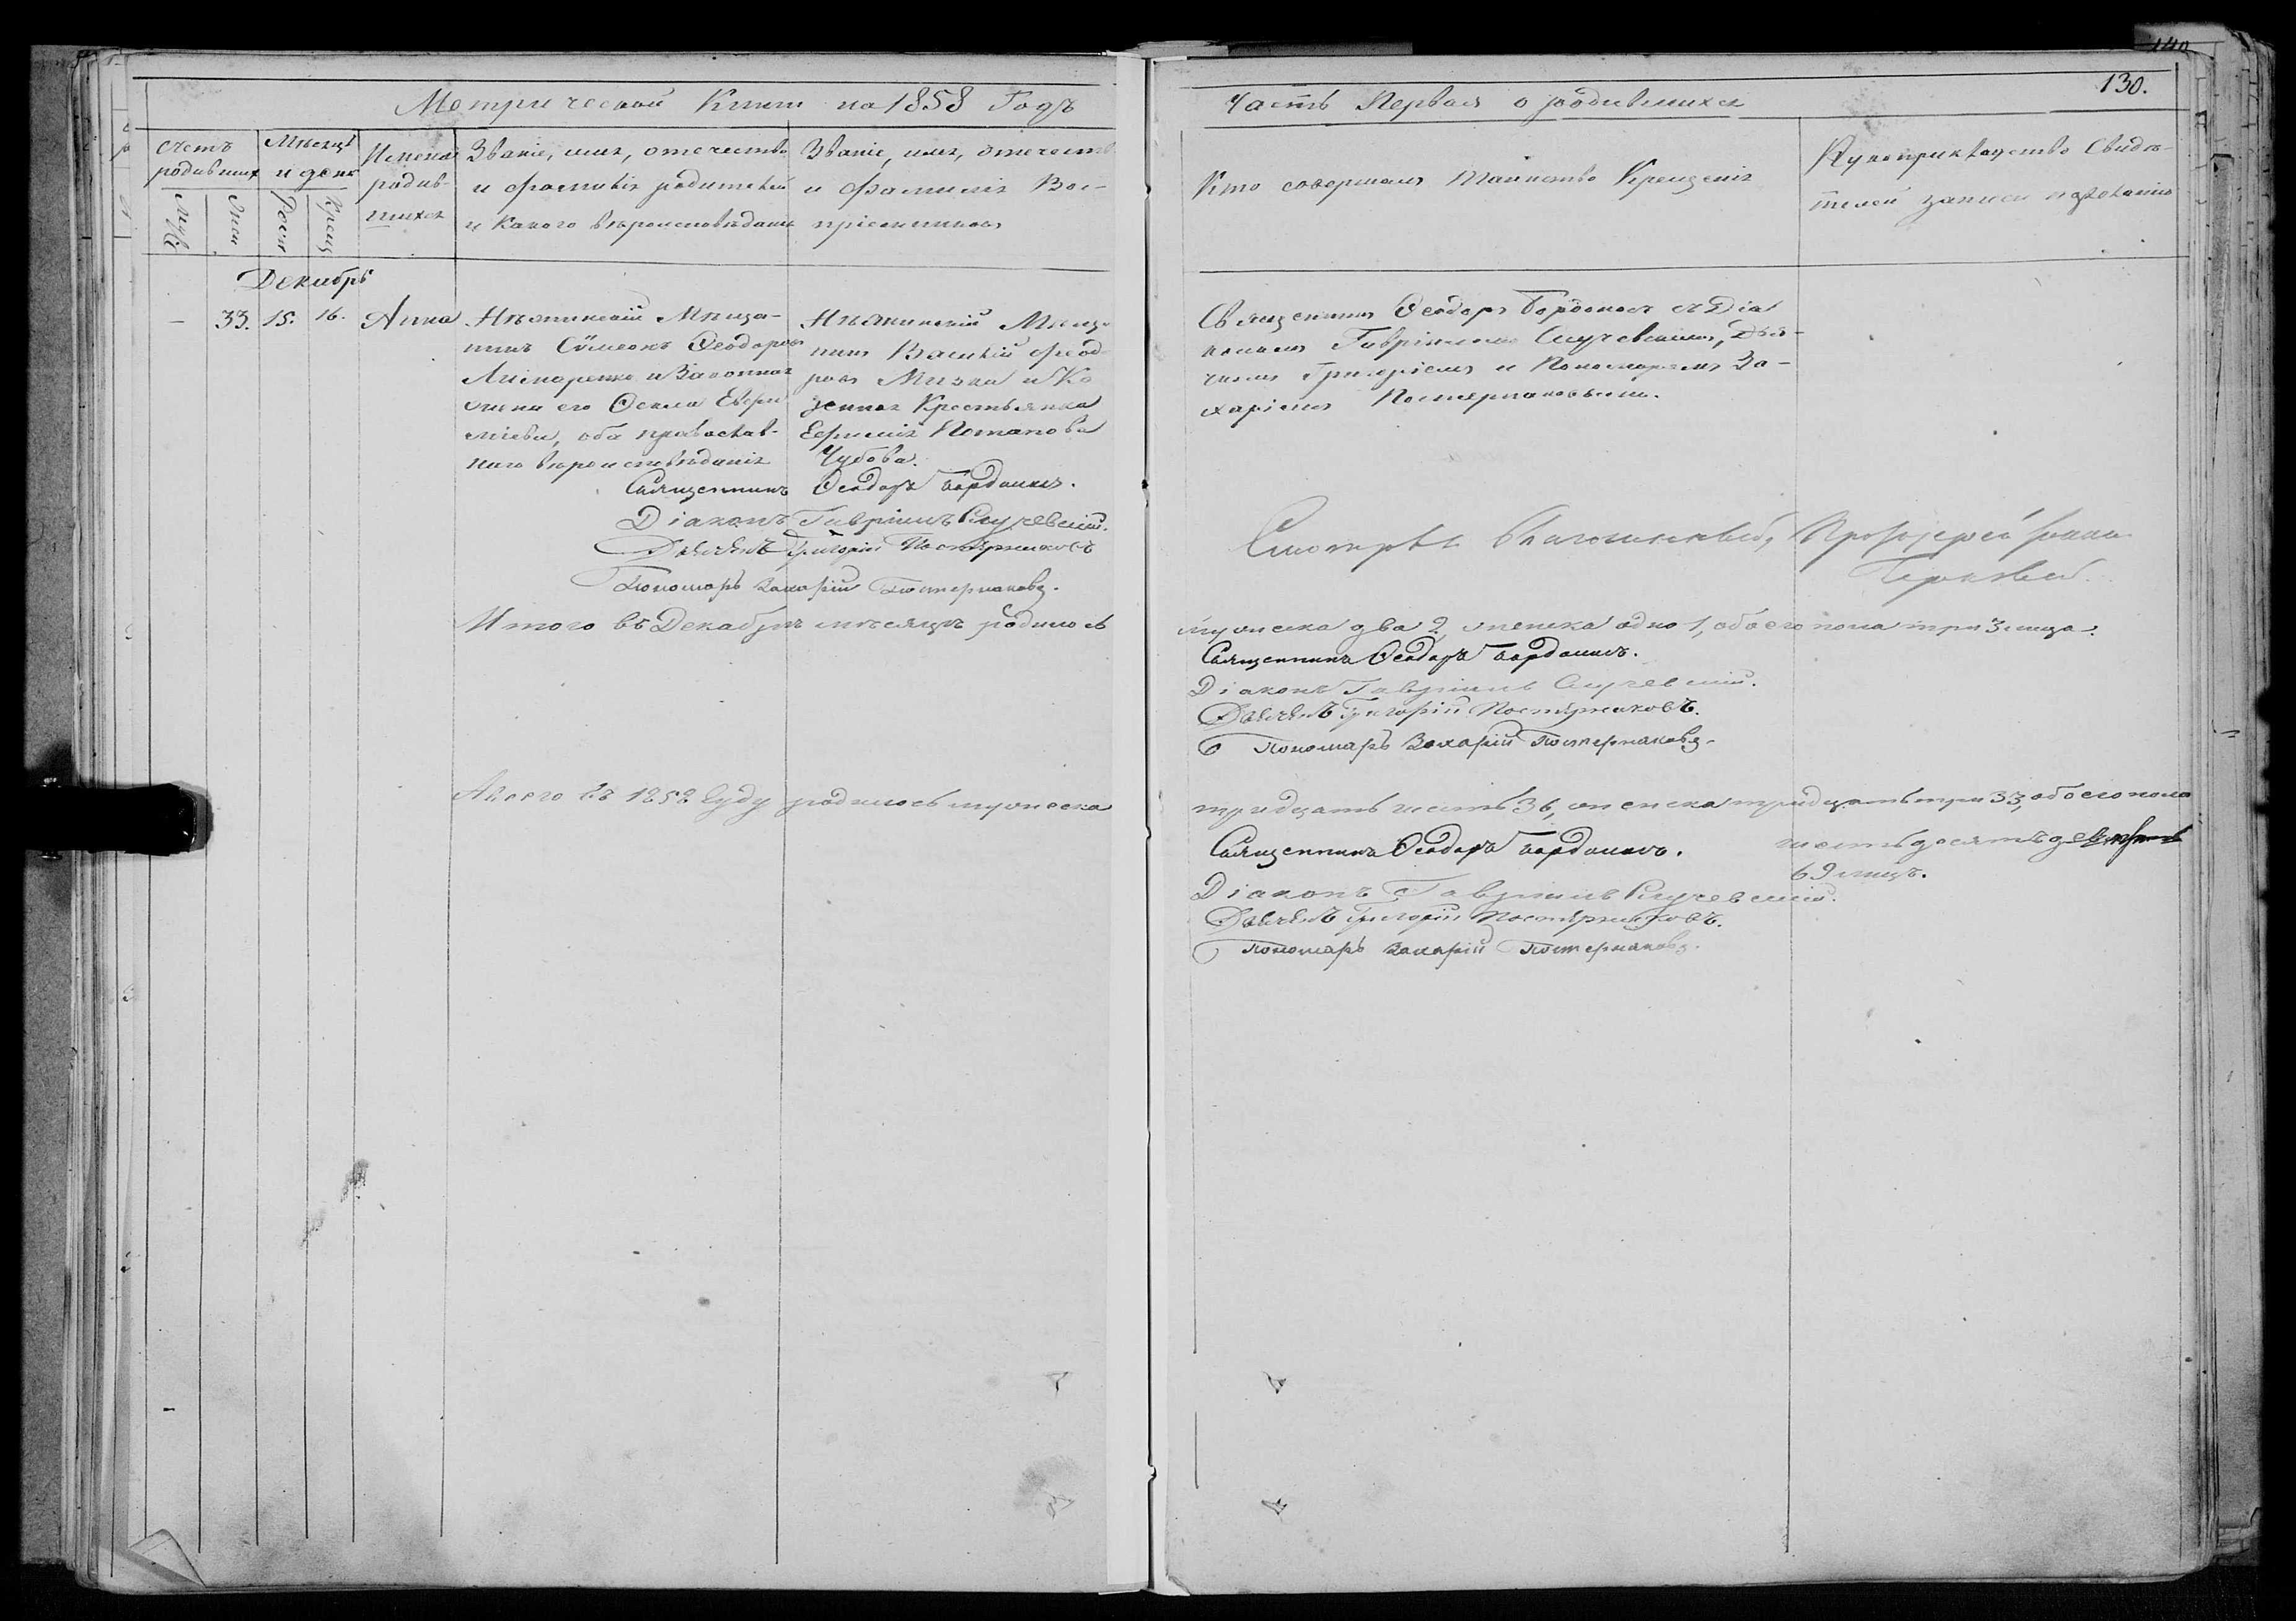 140
130.
Метрической Книги на 1858 Годъ
Часть Первая о родившихся
Счетъ родившихъ
Мѣсяцъ и день
Имена родив-
шихся
Звание, имя, отечество
и фамилія родителей
и какого вѣроисповѣданія
Званіе, имя, отечество
и фамилія Вос-
пріемниковъ
Кто совершалъ таинство Крещенія
Рукоприкладство Свидѣ-
телей записи
Муж
Жен
Рож
Крещ
Декабрь
— 33. 15. 16. Анна
Нѣжинскій Мѣща-
нинъ Сѷмеонъ Ѳеодоровъ
и Законная
жена его Евфи-
міева, оба православ-
наго вѣроисповѣданія
Нѣжинскій Мѣща-
нинъ Василій Фео-
ровъ и Ка-
зенная Крестьянка
Евфимія Потапова
Чубова.
Священникъ Ѳеодоръ съ Діа-
кономъ Гавріиломъ Случевскимъ, Дья-
чкомъ Григоріемъ и Пономаремъ За-
харіемъ Постернаковымъ.
Священникъ Ѳеодоръ
Діаконъ Гавріилъ Случевскій.
Дьячекъ Григорій Постернаковъ
Пономарь Захарій Постернаковъ.
Благочинный, Протоіерей
Итого въ Декабрѣ мѣсяцѣ родилось
мужеска два 2, женска одно 1, обоего пола три 3 лица.
Священникъ Ѳеодоръ
Діаконъ Гавріилъ Случевскій.
Дьячекъ Григорій Постернаковъ.
Пономарь Захарій Постернаковъ.
А всего въ 1858 году родилось мужеска
тридцать шесть 36, женска тридцать три 33, обоего пола
шестьдесятъ девять
69 лицъ.
Священникъ Ѳеодоръ
Діаконъ Гавріилъ Случевскій.
Дьячекъ Григорій Постернаковъ.
Пономарь Захарій Постернаковъ.